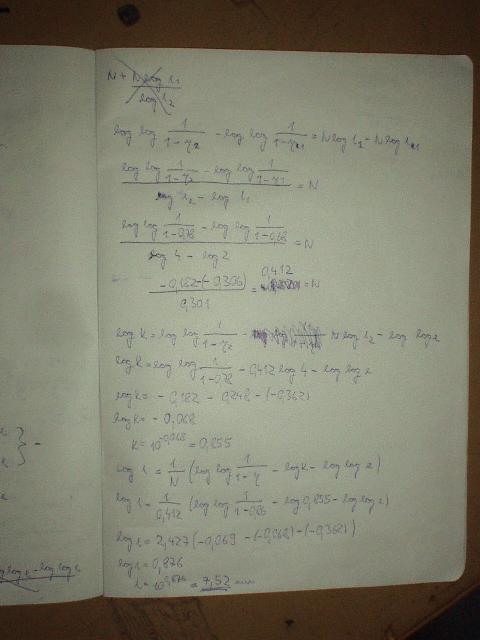 N + N log l1
log l2
log log 1/(1-η2) - log log 1/(1-η1) = N log l2 - N log l1
log log 1/(1-η2) - log log 1/(1-η1)
log l2 - log l1 = N
log log 1/(1-0,78) - log log 1/(1-0,68)
log 4 - log 2 = N
-0,182-(-0,306)
0,301 = 0,412 = N
log k = log log 1/(1-η2) - N log l2 - log log e
log k = log log 1/(1-0,78) - 0,412 log 4 - log log e
log k = - 0,182 - 0,248 - (-0,362)
log k = - 0,068
k = 10^-0,068 = 0,855
log l = 1/N (log log 1/(1-η) - log k - log log e)
log l = 1/0,412 (log log 1/(1-0,86) - log 0,855 - log log e)
log l = 2,427 (-0,069 - (-0,068) - (-0,362))
log l = 0,876
l = 10^0,876 = 7,52 min